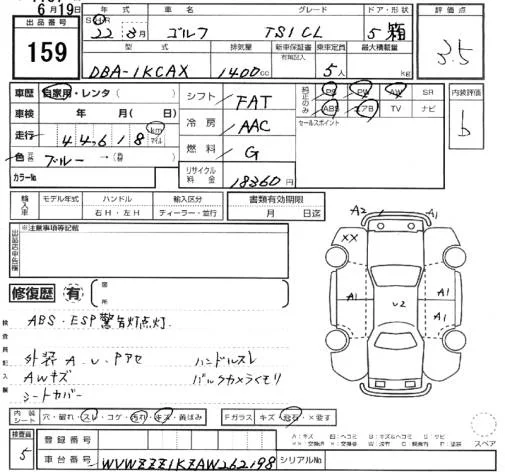 6月19日
出品番号
159
年式 車名 グレード ドア・形状
22 8月 ゴルフ TSI CL 5 箱
型式 排気量 新車保証書 乗車定員 最大積載量
有無記入
DBA-1KCAX 1400cc 5人 kg
評価点
3.5
車歴 自家用・レンタ( )
車検 年 月( 日)
走行 44,618 km マイル
色 ブルー →( )
カラーNo.
シフト FAT
冷房 AAC
燃料 G
リサイクル料金 18360円
純正のみ PS PW AW SR
ABS エアB TV ナビ
セールスポイント
内装評価
b
輸入車 モデル年式 ハンドル 輸入区分
右H・左H ディーラー・並行
書類有効期限
月 日迄
出品店申告欄 ※注意事項等記載
修復歴 有 箇所
検査員記入欄
ABS・ESP警告灯点灯.
外装A.U.Pアセ ハンドルスレ
AWキズ バックカメラくもり
シートカバー
A2 A1
XX A1
A1 U2 A1
A1
内装シート 穴・破れ・スレ・コゲ・汚れ・キズ・黄ばみ
Fガラス キズ・飛石・X要す
スペア
検査員 5
登録番号
車台番号 WVWZZZ1KZAW262198 シリアルNo.